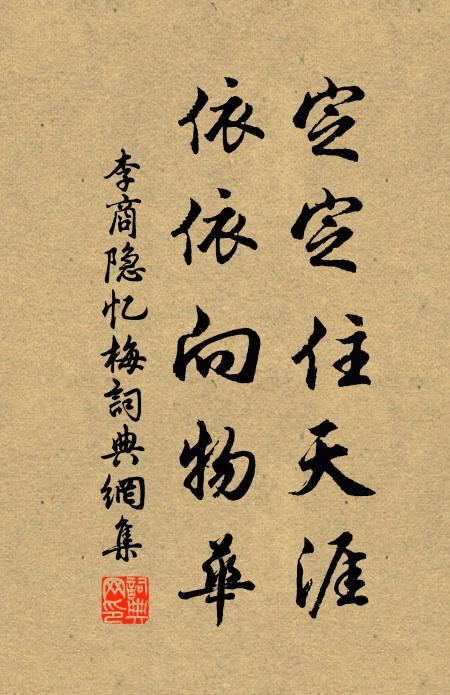 定定住天涯
依依向物華
李商隐忆梅詞典網集
詞典網印